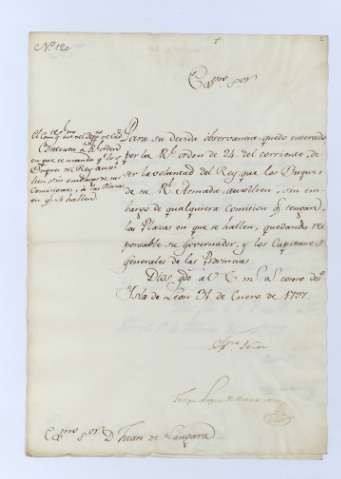 Nº 120
Exmo. Sor.
Para su devida observancia quedo enterado
por la Rl. orden de 24 del corriente, de
ser la voluntad del Rey que los Buques
de su Rl. Armada, auxîlien, sin em
bargo de qualquiera Comision qe. tengan,
las Plazas en que se hallen, quedando res
ponsable su governador, y los Capitanes
generales de las Provincias.
Dios gde. á V. E. ms. as. como deso.
Isla de Leon 31 de Enero de 1797.
Exmo. Señor
Exmo. Sor. D. Juan de Langara
El
Departamto. de Cadiz
Contexta á Rl. orden
en que se manda q. los
Buques del Rey auxî
lien, sin embargo de sus
Comisiones, á las Plazas
en q. se hallen